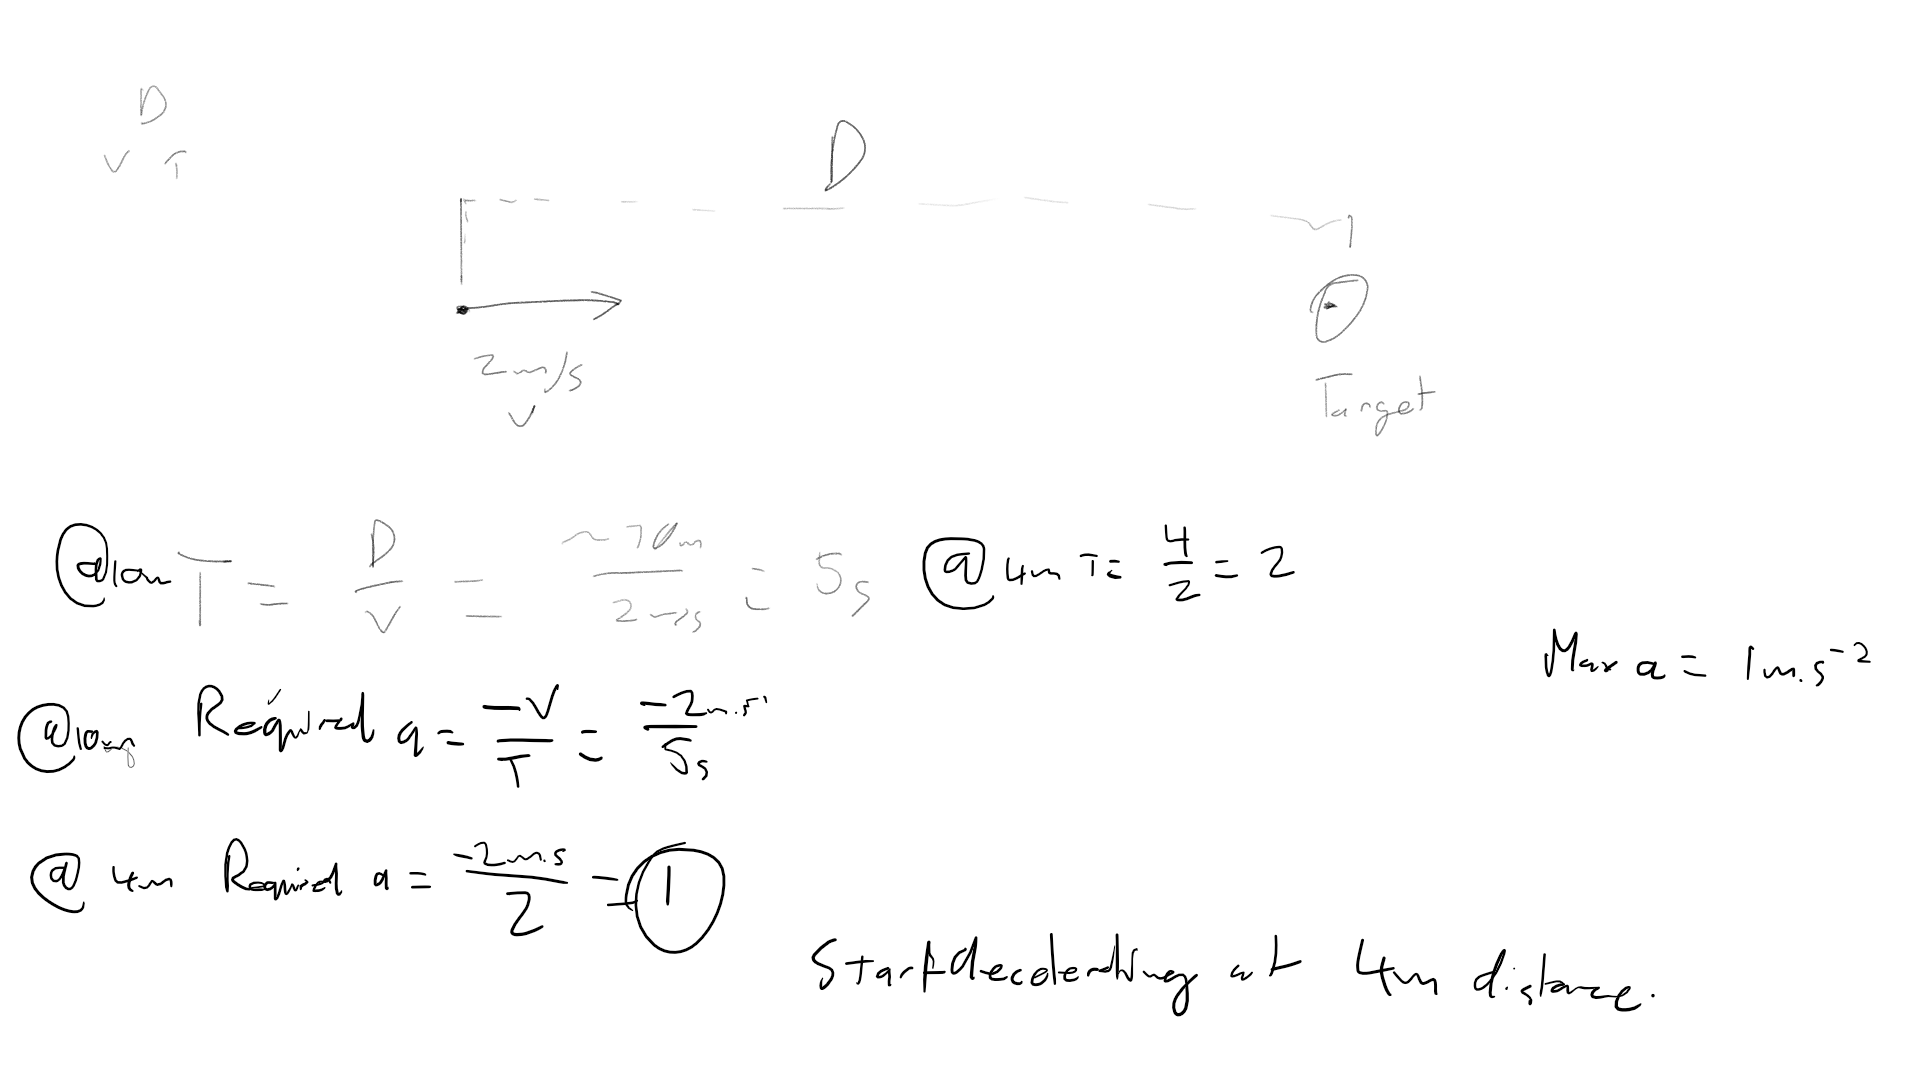 D
V T
D
2m/s
V
Target
@10m T = D/V = ~10m / 2m/s = 5s @ 4m T = 4/2 = 2
Max a = 1m.s⁻²
@10m Required a = -V/T = -2m.s⁻¹ / 5s
@ 4m Required a = -2m.s / 2 = 1
Start decelerating at 4m distance.